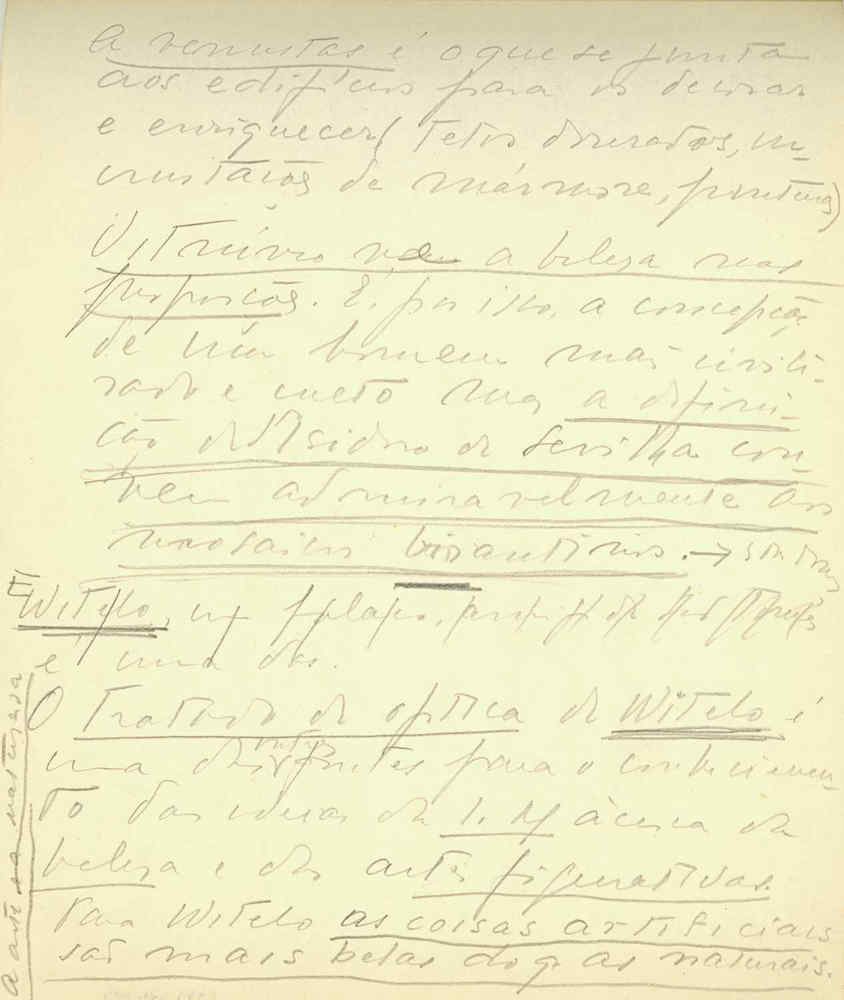 A venustas é o que se junta
aos edifícios para os decorar
e enriquecer (tetos dourados, in-
crustações de mármore, pinturas)
Vitrúvio vê a beleza nas
proporções. É, por isso, a concepção
de um homem mais civili-
zado e culto mas a defini-
ção de Isidro de Sevilha con-
vem admiravelmente aos
mosaicos bizantinos. →
Witelo, um
é uma das.
O Tratado de optica de Witelo é
uma das fontes para o conhecimen-
to das ideias da I. M. àcerca da
beleza e das artes figurativas.
Para Witelo as coisas artificiais
são mais belas do q. as naturais.
a arte